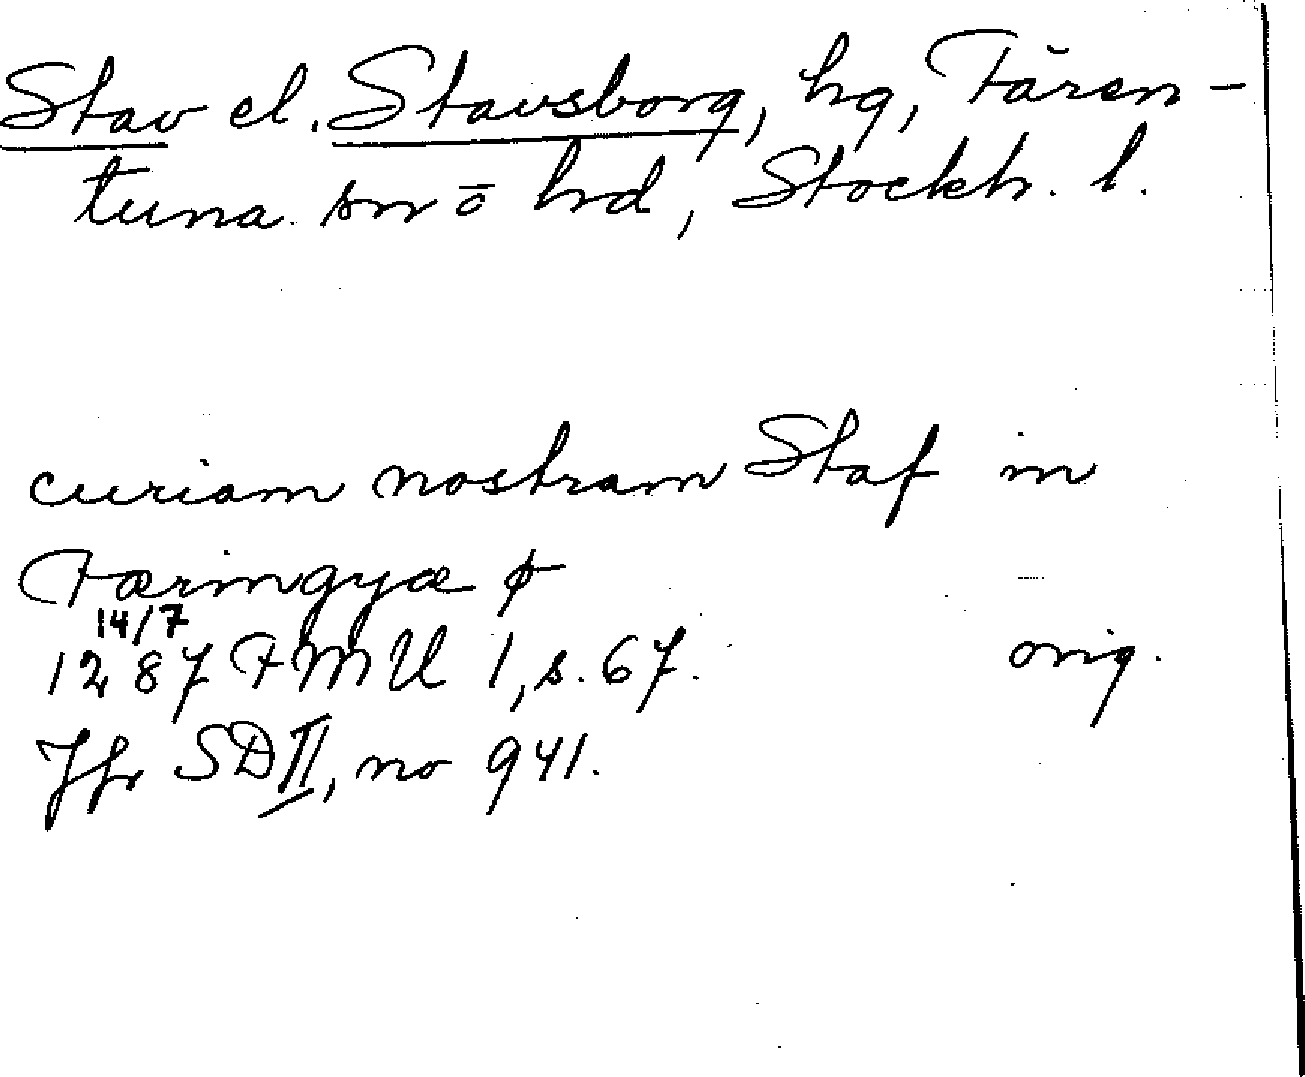 Stav el. Stavsborg, hg, Fären-
tuna sn o hd, Stockh. l.
curiam nostram Staf in
Færingyæ
14/7
1287 FMU 1, s. 67. orig.
Jfr SD II, no 941.